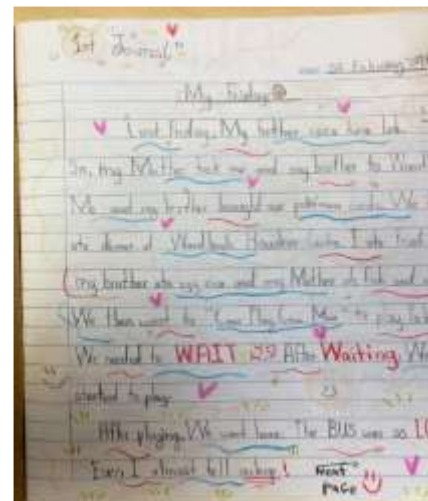 1st Journal
My Friday
Last Friday, My father came home late.
So, my Mother took me and my brother to Wood
Me and my brother bought our pokemon cards. We
ate dinner at Woodlands Hawker Centre. I ate
my brother ate egg rice and my Mother ate fish and
We then went to "Come Play Me" to play
We needed to WAIT After Waiting, We
started to play.
After playing, We went home. The BUS was so LO
Even I almost fell asleep!
Next page